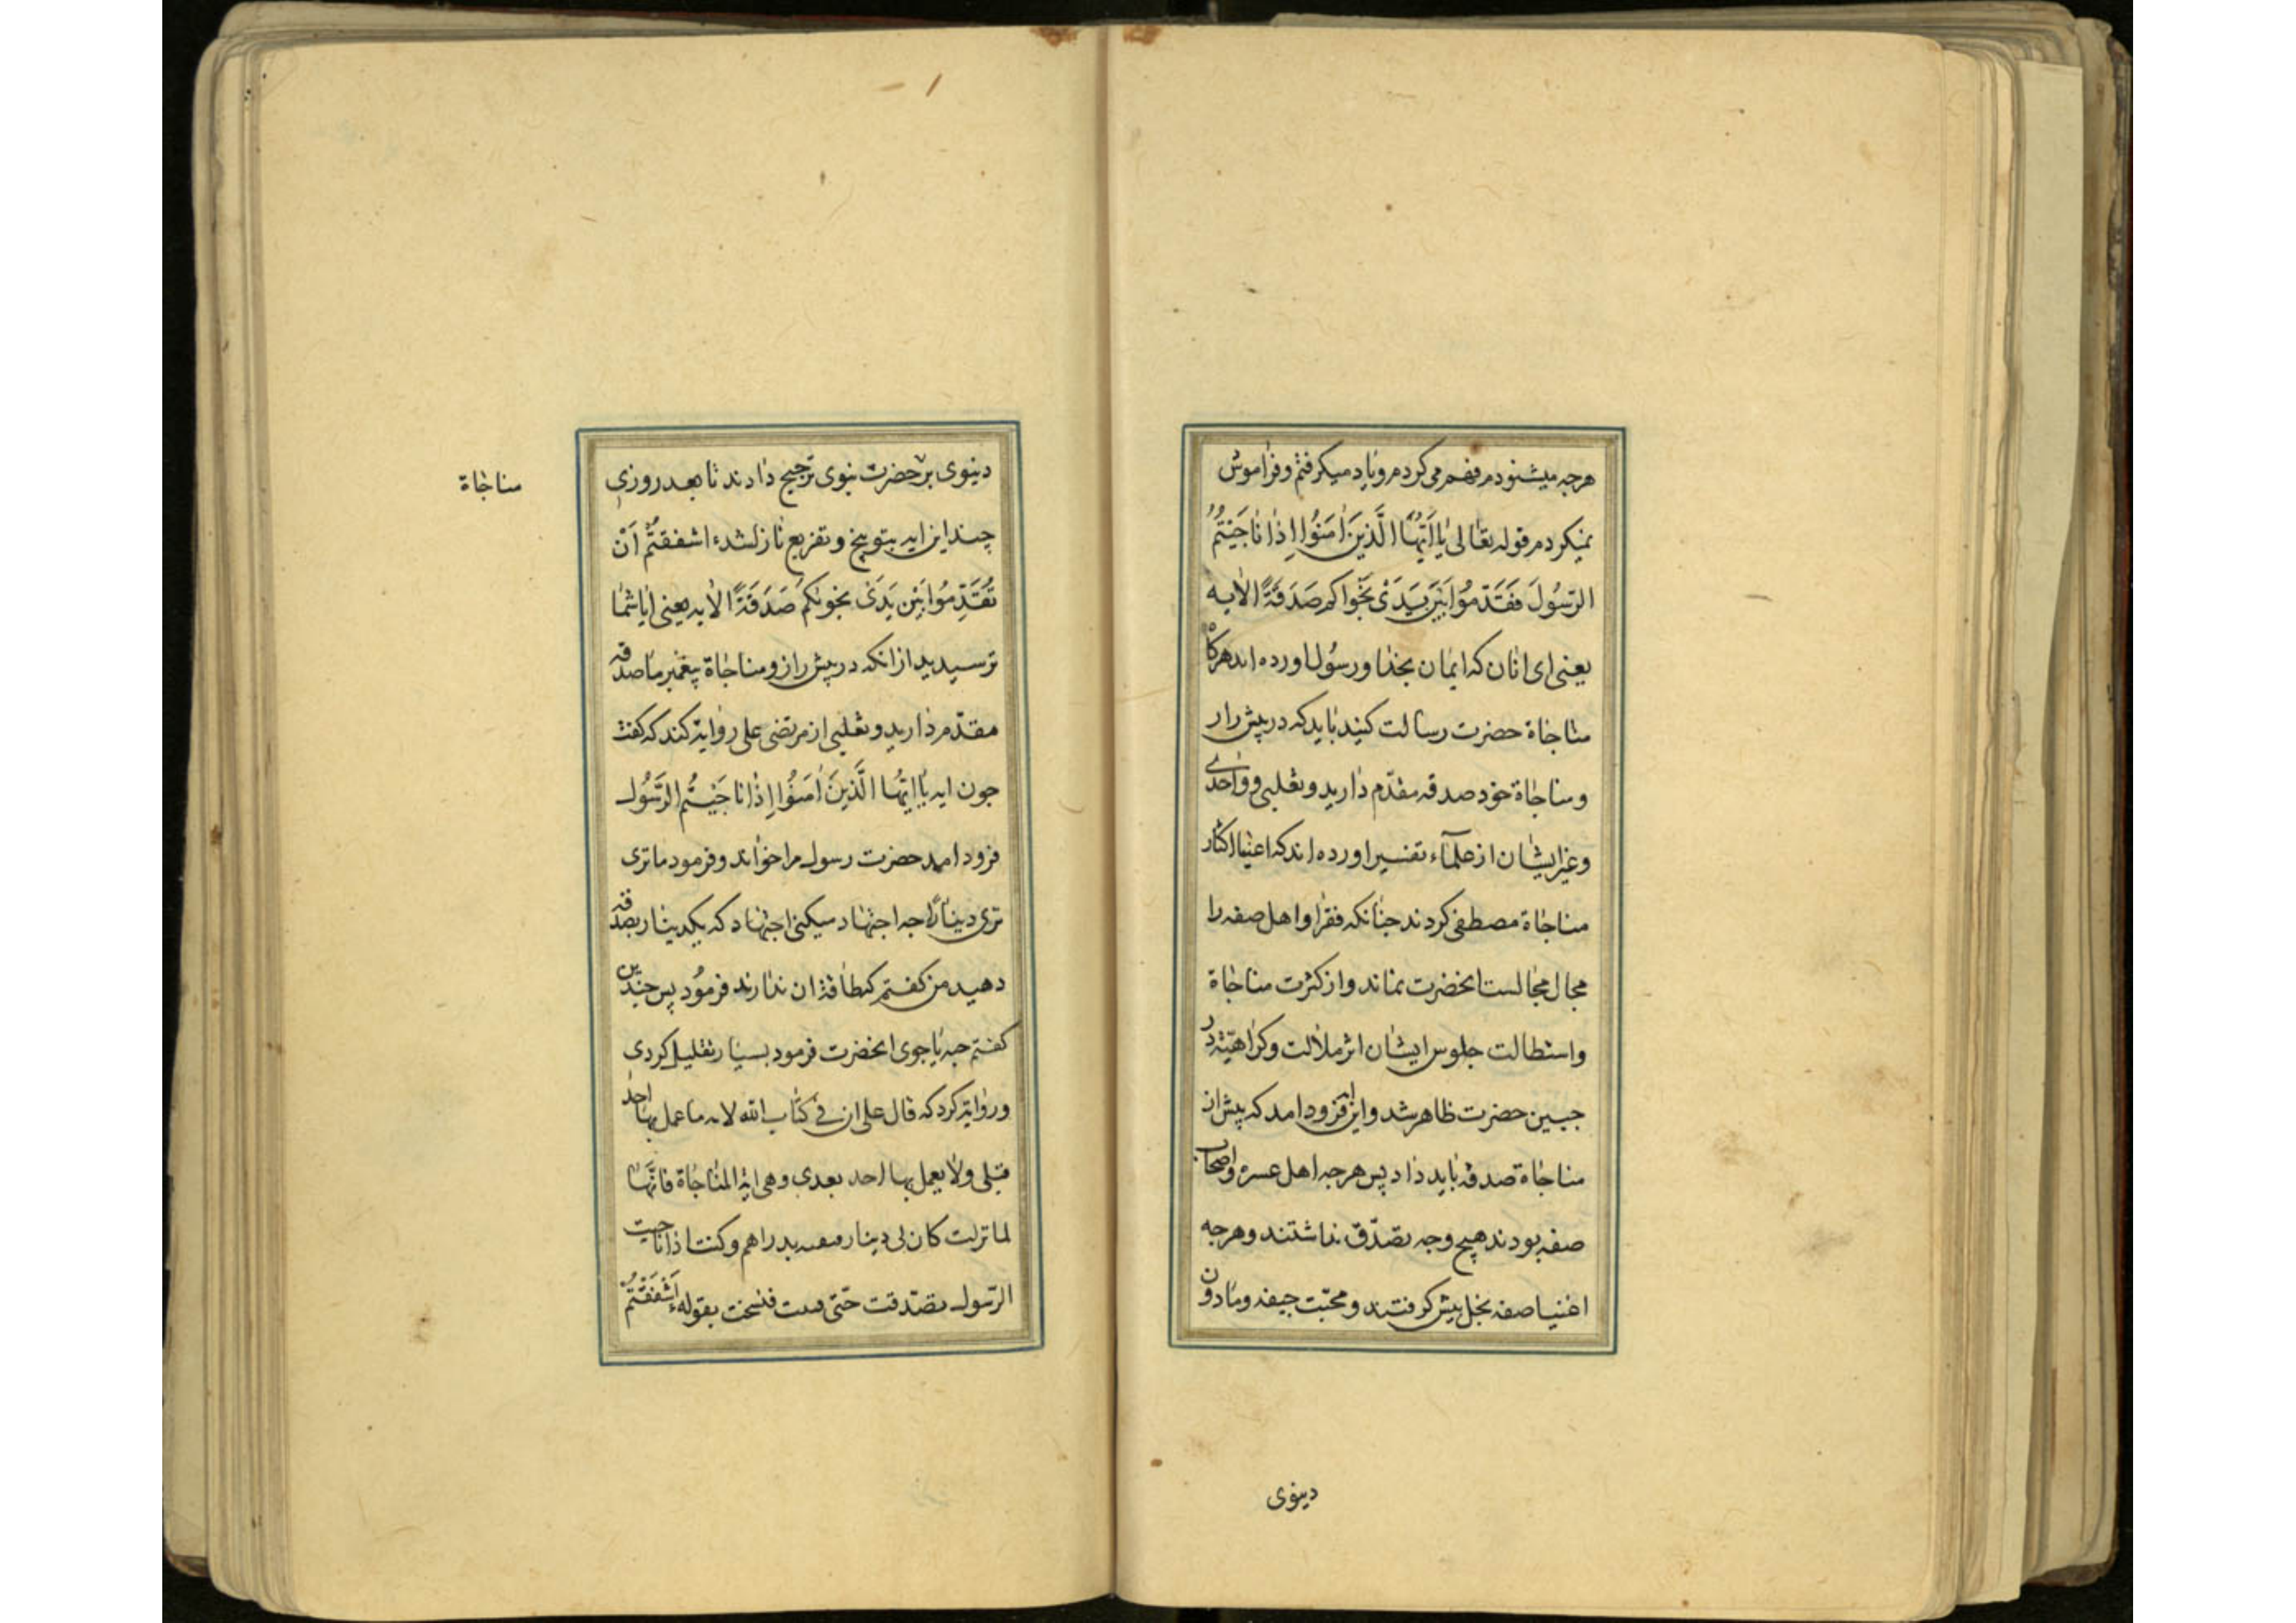 هرجه میشنودم فهم می کردم ویاد میکرفتم وفراموش
نمیکردم قوله تعالی یٰا اَیُّهَا الَّذینَ اٰمَنُوا اِذٰا نٰاجَیْتُمُ
الرَّسُولَ فَقَدِّمُوا بَیْنَ یَدَیْ نَجْوٰاکم صَدَقَةً الایه
یعنی ای انان که ایمان بخدا ورسُول اورده اند هرکاه
مناجاة حضرت رسالت کنید باید که در پیش راز
ومناجاة خود صدقه مقدّم دارید وثعلبی وواحدی
وغیر ایشان از علمآء تفسیر اورده اند که اغنیا اکثار
مناجاة مصطفی کردند جنانکه فقرا واهل صفه را
مجال مجالست انحضرت نماند واز کثرت مناجاة
واستطالت جلوس ایشان اثر ملالت وکراهیّة در
جبین حضرت ظاهر شد واین ایه فرود امد که پیش از
مناجاة صدقه باید داد پس هرجه اهل عسره واصحاب
صفه بودند هیج وجه تصدّق نداشتند وهرجه
اغنیا صفه بخل پیش کرفتند ومحبّت جیفه ومادون
دینوی
دینوی بر حضرت نبوی ترجیح دادند تا بعد روزی
مناجاة
چند این ایه بتوبیخ وتقریع نازل شد ءاشفقتُم اَنْ
تُقَدِّمُوا بَیْن یَدَیْ نجویکُم صَدَقَةً الایه یعنی ایا شما
ترسیدید از انکه در پیش راز ومناجاة پیغمبر ما صدقه
مقدّم دارید وثعلبی از مرتضی علی روایة کند که کفت
جون ایه یٰا اَیُّهَا الَّذینَ اٰمَنُوا اِذٰا نٰاجَیْتُم الرَّسُول
فرود امد حضرت رسول مرا خواند وفرمود ما تری
تری دینارًا جه اجتهاد میکنی اجتهاد که یکدینار بصدقه
دهید من کفتم کطاقة ان ندارند فرمُود پس جندین
کفتم حبه یا جوی انحضرت فرمود بسیار تقلیل کردی
وروایة کرد که قال علی ان فی کتاب الله لایه ما عمل بها احد
قبلی ولا یعمل بها احد بعدی وهی ایة المناجاة فانّها
لما نزلت کان لی دینار فبعته بدراهم وکنت اذا ناجیت
الرّسول تصدّقت حتّی فنیت فنسخت بقوله ءَاَشْفَقْتُمْ